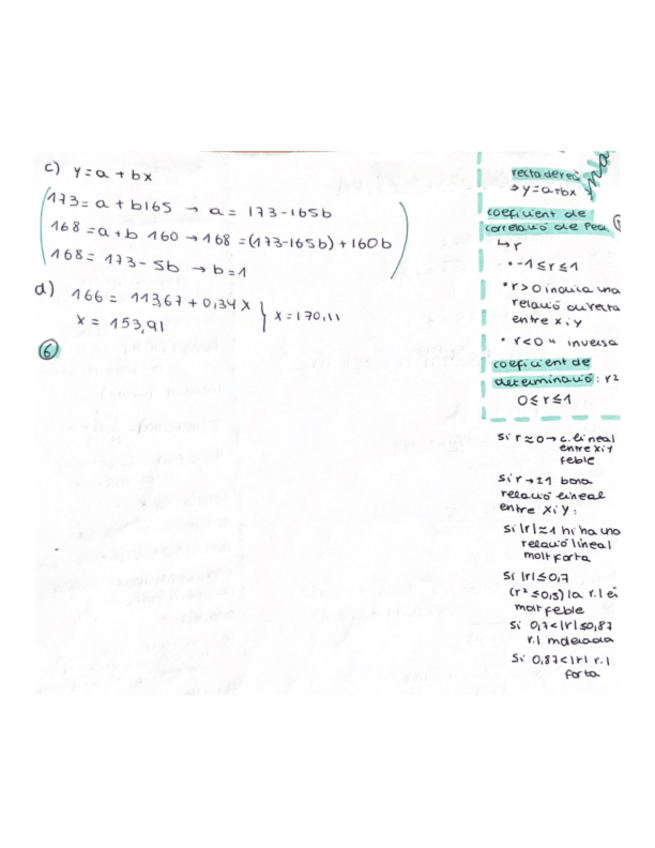 c) y = a + bx
173 = a + b165 → a = 173-165b
168 = a + b 160 → 168 = (173-165b) + 160b
168 = 173 - 5b → b = 1
d) 166 = 113,67 + 0,34 x
x = 153,91 } x = 170,11
6
recta de
→ y = a+bx
coeficient de
correlació de
↳ r
• -1 ≤ r ≤ 1
• r > 0 indica una
relació directa
entre x i y
• r < 0 " inversa
coeficient de
determinació : r²
0 ≤ r ≤ 1
Si r ≈ 0 → c. lineal
entre x i y
feble
Si r → ±1 bona
relació lineal
entre x i y :
Si |r| ≈ 1 hi ha una
relació lineal
molt forta
Si |r| ≤ 0,7
(r² ≤ 0,5) la r. l
molt feble
Si 0,7 < |r| ≤ 0,87
r. l moderada
Si 0,87 < |r| r. l
forta